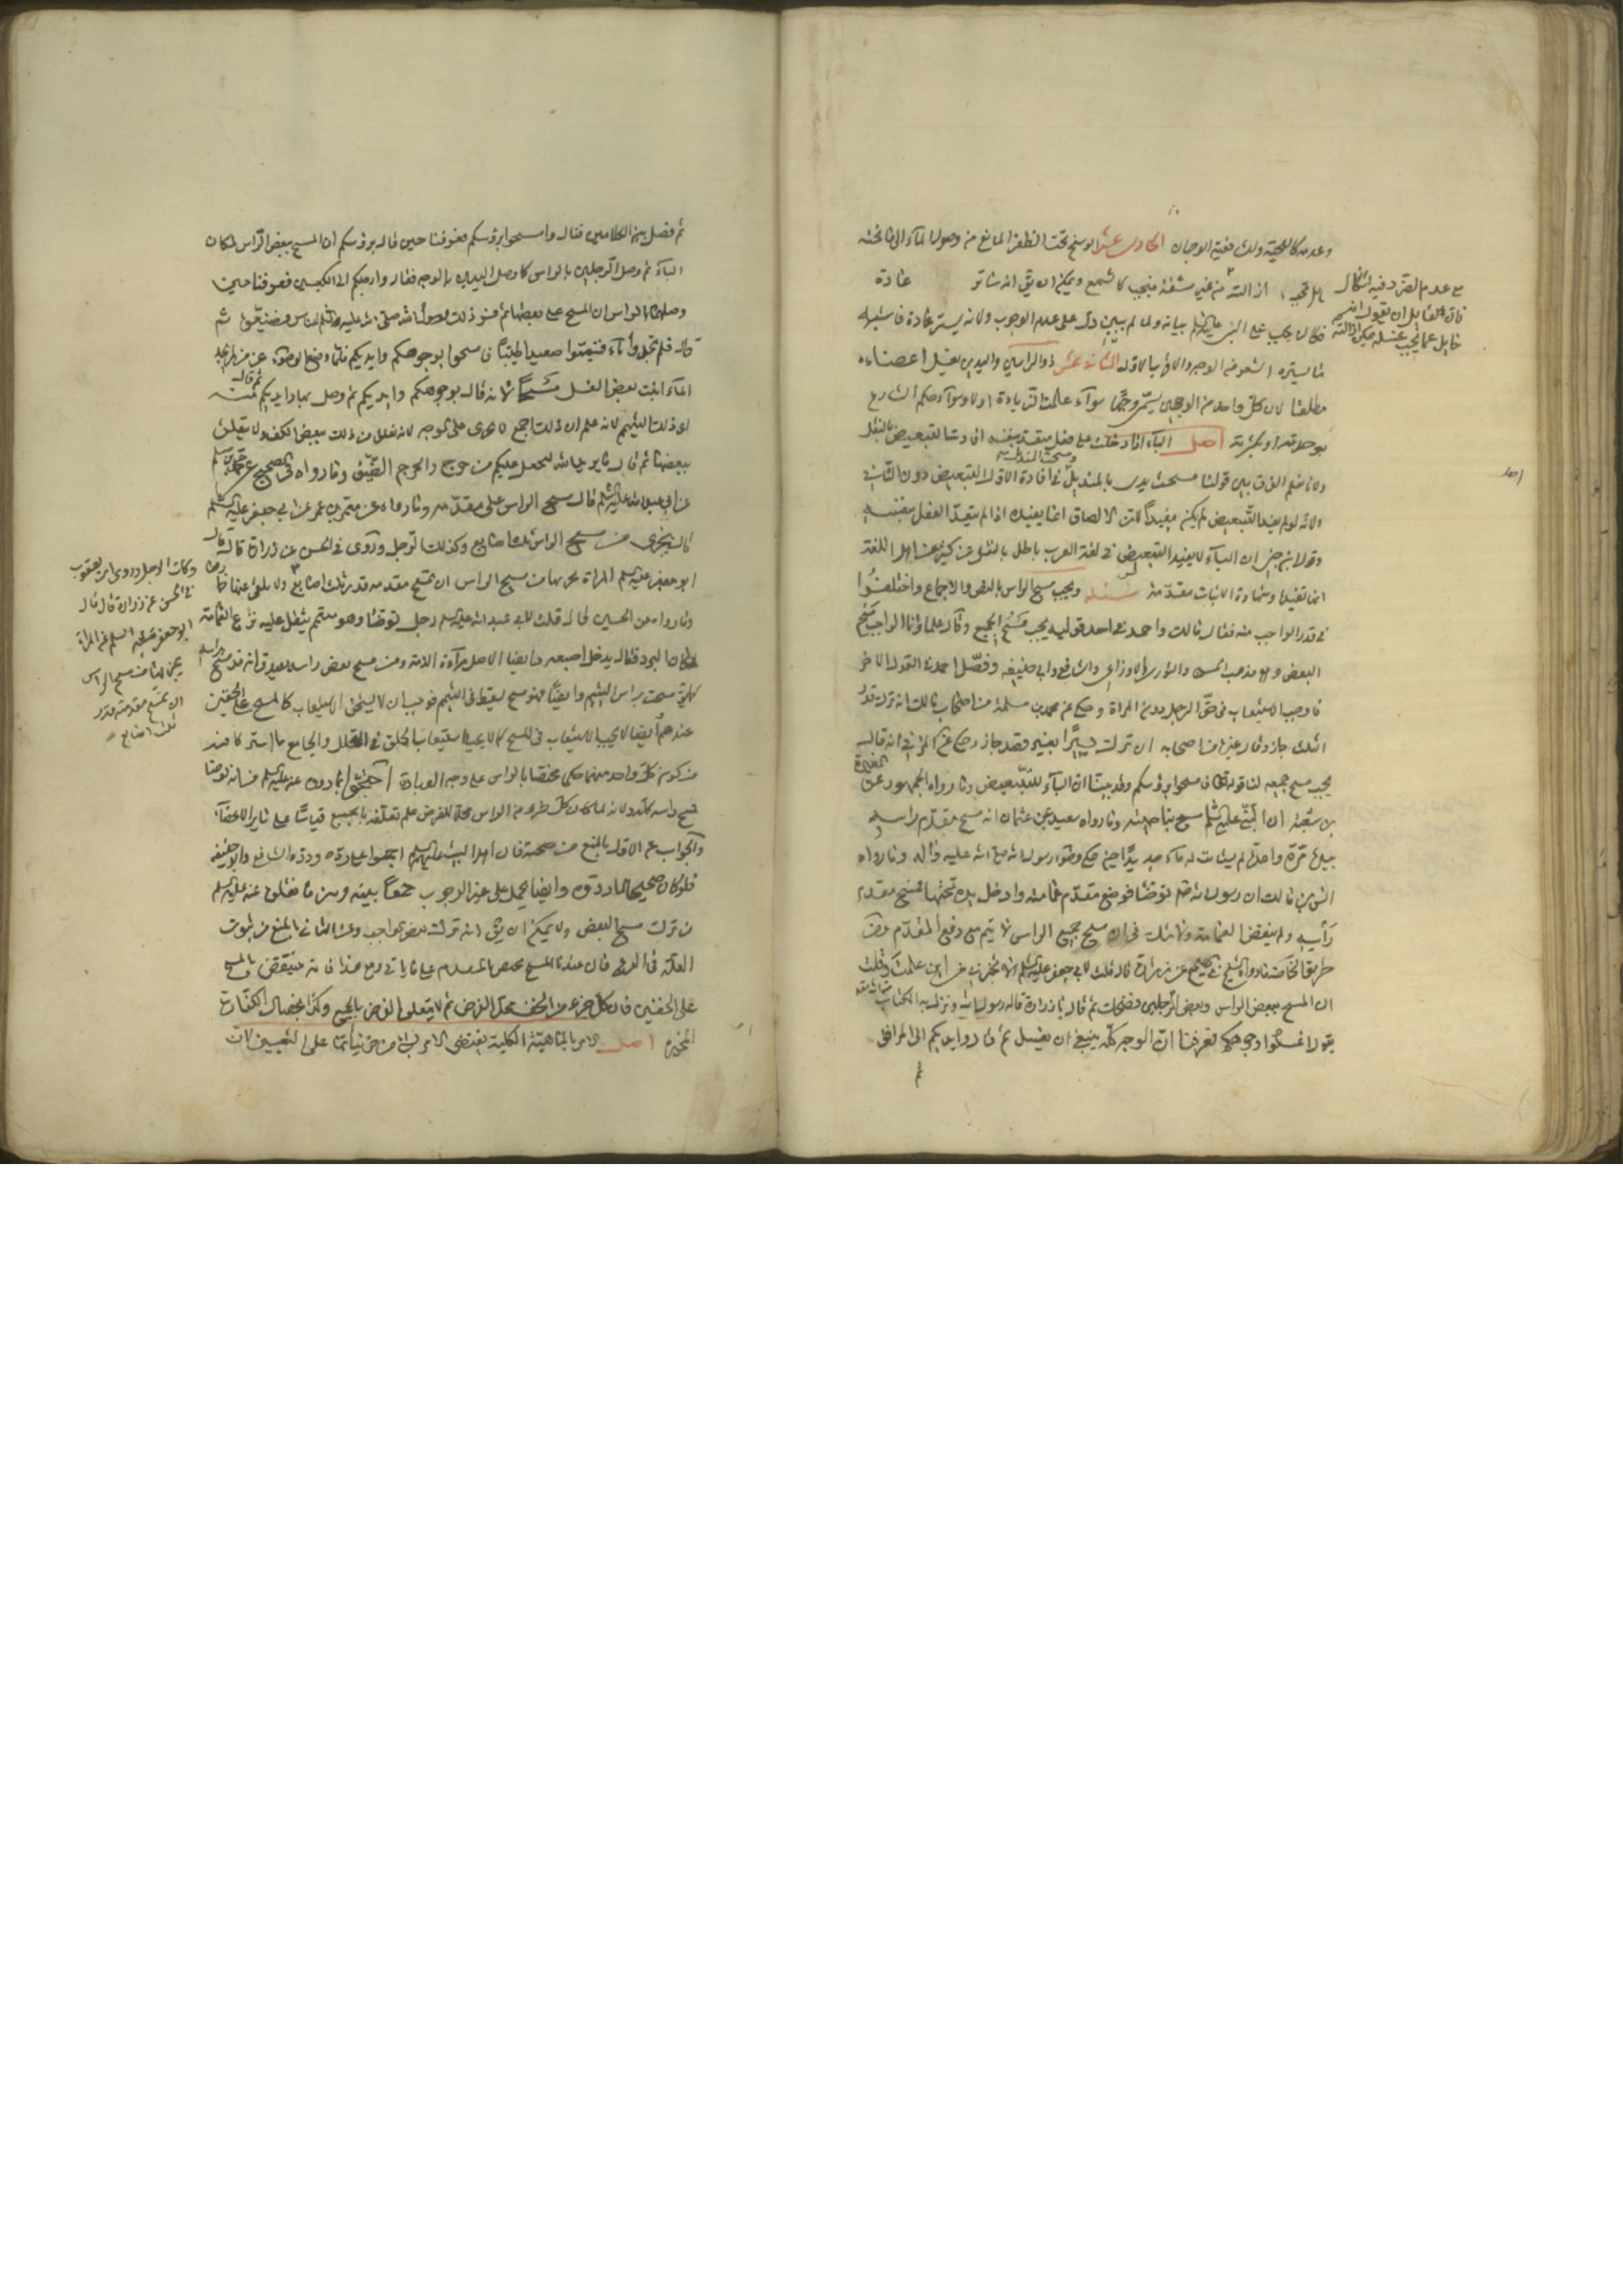 وعدمه كاللحية ولمن ففيه الوجهان الحادي عشر الوسخ تحت الظفر المانع من وصول الماء الى ما تحته
هل تجب ازالته من غير مشقة فيجب كالشمع ويمكن ان يق انه ساتر عادة
فكان يجب على النبي عليه السلم بيانه ولما لم يبين دل على عدم الوجوب ولانه يستر عادة فاشبه
ما يستره الشعر من الوجه والاقرب الاول الثاني عشر ذو الراسين والبدنين يغسل اعضاءه
مطلقا لان كل واحد من الوجهين يسمى وجها سواء علمت الزيادة اولا وسواء حكم الشارع
بوحدته او بكثرته اصل الباء اذا دخلت على فعل يتعدى بنفسه افادت التبعيض بالنقل
ولانا نعلم الفرق بين قولنا مسحت يدى بالمنديل في افادة الاول التبعيض دون الثاني
ومسحت المنديل
ولانه لو لم يفيد التبعيض لم يكن مفيدا لان الالصاق انما يفيده اذا لم يتعد الفعل بنفسه
وقول ابن جني ان الباء لا يفيد التبعيض في لغة العرب باطل بالنقل عن كثير من اهل اللغة
انها تفيد وشهادة الاثبات مقدمة مسئلة ويجب مسح الراس بالنص والاجماع واختلفوا
في قدر الواجب منه فقال مالك واحمد في احد قوليه يجب مسح الجميع وقال علماؤنا الواجب مسح
البعض وهو مذهب الحسن والثوري والاوزاعي والشافعي وابي حنيفه وفصل احمد في القول الاخر
فاوجب الاستيعاب في حق الرجل دون المراة وحكي عن محمد بن مسلمة من اصحاب مالك انه ان ترك قدر
الثلث جاز وقال غيره من اصحابه ان ترك يسيرا بغير قصد جاز وحكي عن المزني انه قال
يجب مسح جميعه لنا قوله تعالى فامسحوا برؤسكم وقد بينا ان الباء للتبعيض وما رواه الجمهور عن
المغيرة
بن شعبة ان النبي عليه السلم مسح بناصيته وما رواه سعيد عن عثمان انه مسح مقدم راسه
بيده مرة واحدة لم يستانف له ماء جديدا حين حكي وضوء رسول الله صلى الله عليه واله وما رواه
انس بن مالك ان رسول الله صلم توضأ فوضع مقدم عمامته وادخل يده تحتها فمسح مقدم
رأسه ولم ينقض العمامة ولا شك في ان مسح جميع الراس لا يتم مع رفع المقدم ومن
طريق الخاصة ما رواه الشيخ في الصحيح عن زرارة قال قلت لابي جعفر عليه السلم الا تخبرني من اين علمت وقلت
ان المسح ببعض الراس وبعض الرجلين فضحك ثم قال يا زرارة قاله رسول الله ونزل به الكتاب من الله
يقول اغسلوا وجوهكم فعرفنا ان الوجه كله ينبغي ان يغسل ثم قال وايديكم الى المرافق
ثم
مع عدم الضرر فيه اشكال
فان للقائل ان يقول انه
حايل عما يجب غسله ويمكن ازالته
اصل
ثم فصل بين الكلامين فقال وامسحوا برؤسكم فعرفنا حين قال برؤسكم ان المسح ببعض الراس لمكان
الباء ثم وصل الرجلين بالراس كما وصل اليدين بالوجه فقال وارجلكم الى الكعبين فعرفنا حين
وصلهما بالراس ان المسح على بعضهما ثم فسر ذلك رسول الله صلى الله عليه واله للناس فضيعوه ثم
قال فلم تجدوا ماء فتيمموا صعيدا طيبا فامسحوا بوجوهكم وايديكم فلما وضع الوضوء عن من لم يجد
الماء اثبت بعض الغسل مسحا لانه قال بوجوهكم وايديكم ثم وصل بها وايديكم منه
ثم قال
اى ذلك التيمم لانه علم ان ذلك اجمع لا يجرى على الوجه لانه يعلق من ذلك ببعض الكف ولا يعلق
ببعضها ثم قال ما يريد الله ليجعل عليكم من حرج والحرج الضيق وما رواه في الصحيح عن محمد بن مسلم
عن ابي عبد الله عليه السلم قال مسح الراس على مقدمه وما رواه عن معمر بن عمر عن ابي جعفر عليه السلم
قال يجزى من مسح الراس ثلث اصابع وكذلك الرجل وروى في الحسن عن زرارة قال قال
ابو جعفر عليه السلم المراة يجزيها من مسح الراس ان تمسح مقدمه قدر ثلث اصابع ولا تلقى عنها خمارها
وما رواه عن الحسين قال قلت لابي عبد الله عليه السلم رجل توضأ وهو معتم فثقل عليه نزع العمامة
لمكان البرد فقال يدخل اصبعه وايضا الاصل براءة الذمة ومن مسح بعض راسه يصدق انه قد مسح براسه
كما يق مسحت براس اليتيم وايضا فهو مسح يسقط في التيمم فوجب ان لا يستحق الاستيعاب كالمسح على الخفين
عندهم وايضا لا يجب الاستيعاب في المسح كما لا يجب استيعاب الحلق في التحلل والجامع ما اشتركا فيه
من كون كل واحد منهما حكم مختصا بالراس على وجه العبادة احتجوا بما روى عنه عليه السلم من انه توضأ
فمسح راسه كله ولانه لما كان كل جزء من الراس محلا للفرض علم تعلقه بالجميع قياسا على ساير الاعضاء
والجواب عن الاول بالمنع من صحته فان اهل البيت عليهم السلم اجمعوا على رده ورده الشافعي وابو حنيفه
فلو كان صحيحا لما ردوه وايضا يحمل على غير الوجوب جمعا بينه وبين ما نقلوه عنه عليه السلم
من ترك مسح البعض ولا يمكن ان يق انه ترك بعض الواجب وعن الثاني بالمنع من ثبوت
العلة في الفرع فان عندنا المسح يختص المقدم على ما ياتي ومع هذا فانه ينتقض بالمسح
على الخفين فان كل جزء من الخف محل الفرض ثم لا يتعلق الفرض بالجميع وكذا بخصال الكفارة
المخيرة اصل الامر بالماهية الكلية يقتضى الامر بشيء من جزئياتها على التعيين لان
وكذلك الرجل وروى ابن يعقوب
في الحسن عن زرارة قال قال
ابو جعفر عليه السلم المراة
يجزيها من مسح الراس
ان تمسح مقدمه قدر
ثلث اصابع